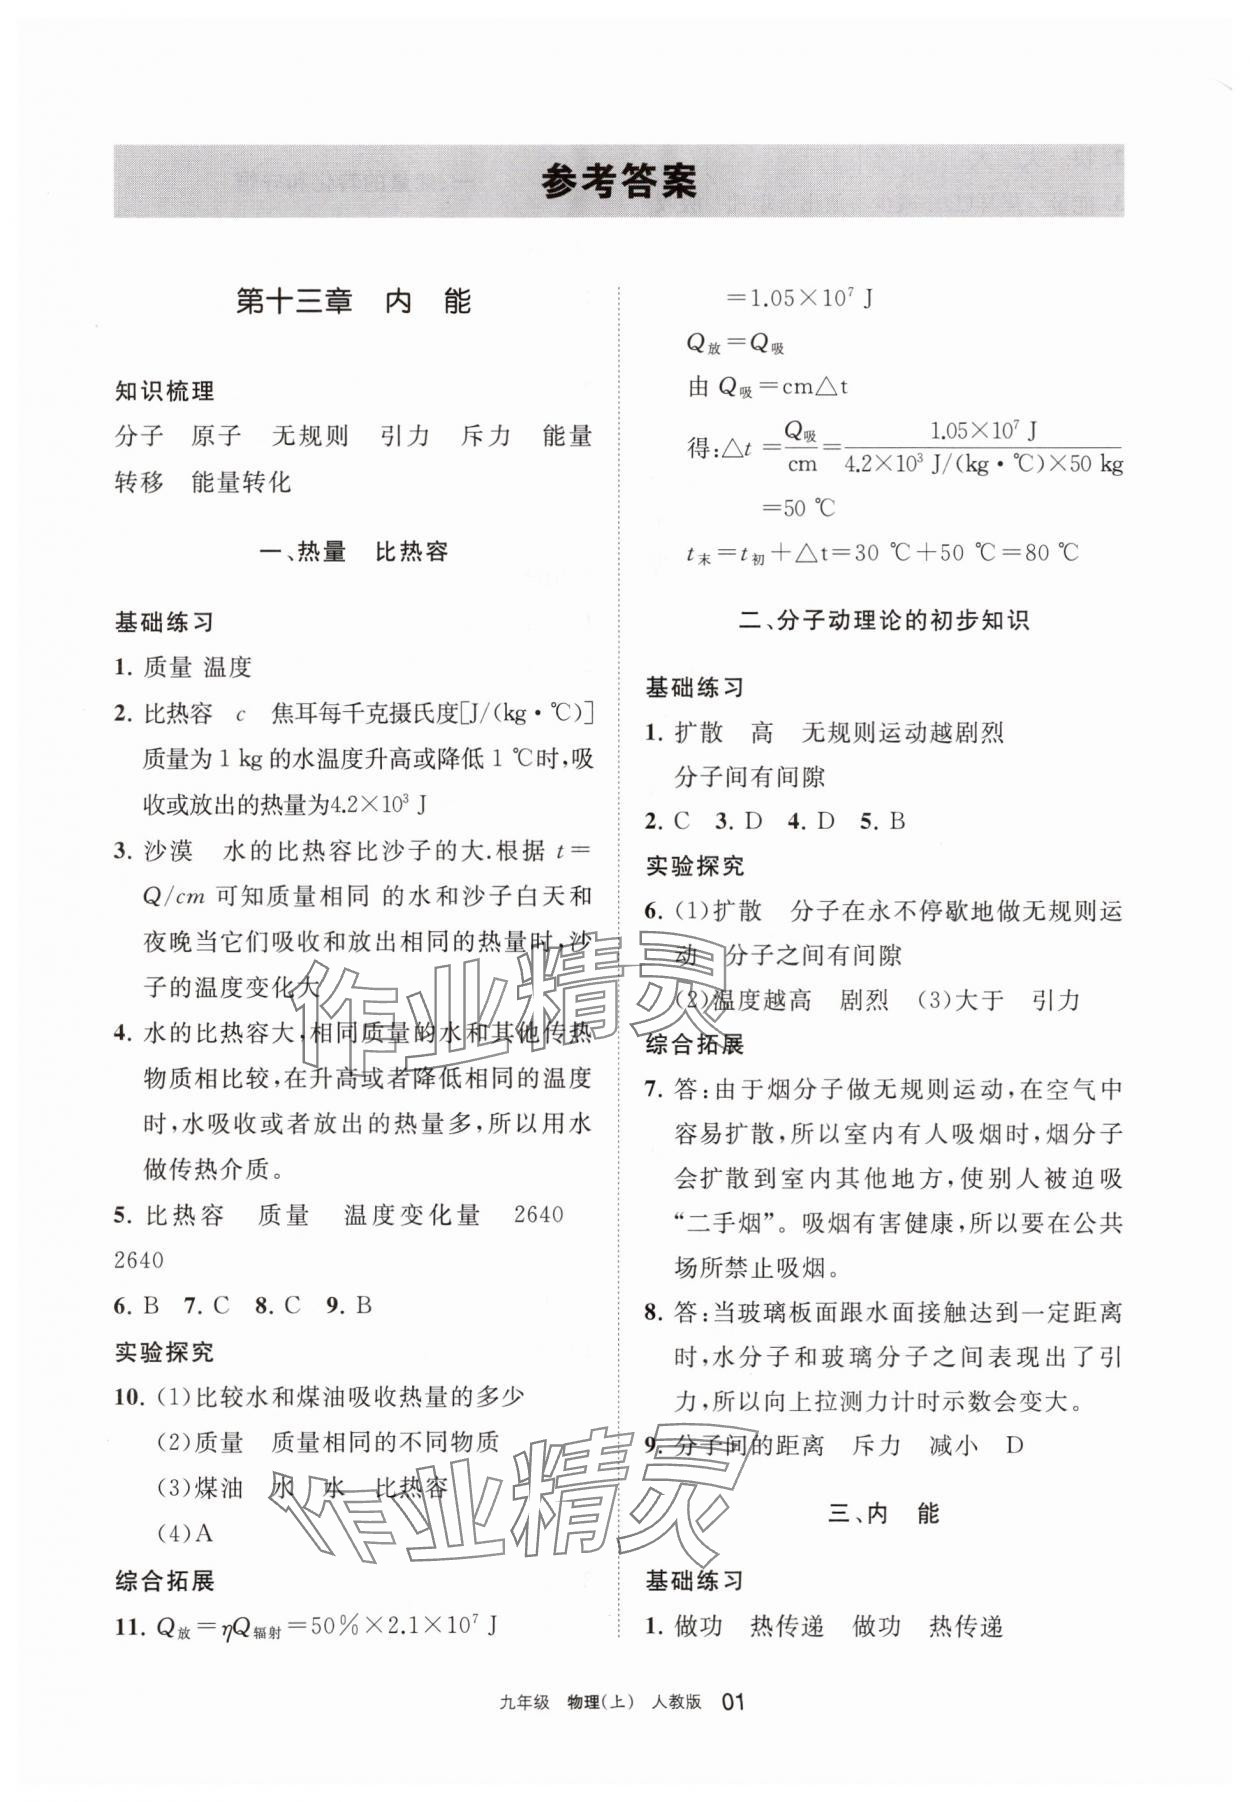 参考答案
第十三章 内 能
知识梳理
分子 原子 无规则 引力 斥力 能量
转移 能量转化
一、热量 比热容
基础练习
1. 质量 温度
2. 比热容 c 焦耳每千克摄氏度[J/(kg·℃)]
质量为 1 kg 的水温度升高或降低 1 ℃时,吸
收或放出的热量为4.2×10³ J
3. 沙漠 水的比热容比沙子的大.根据 t=
Q/cm 可知质量相同 的水和沙子白天和
夜晚当它们吸收和放出相同的热量时,沙
子的温度变化大
4. 水的比热容大,相同质量的水和其他传热
物质相比较,在升高或者降低相同的温度
时,水吸收或者放出的热量多,所以用水
做传热介质。
5. 比热容 质量 温度变化量 2640
2640
6. B 7. C 8. C 9. B
实验探究
10. (1)比较水和煤油吸收热量的多少
(2)质量 质量相同的不同物质
(3)煤油 水 水 比热容
(4)A
综合拓展
11. Q放=ηQ辐射=50%×2.1×10⁷ J
=1.05×10⁷ J
Q放=Q吸
由 Q吸=cm△t
得:△t=Q吸/cm=1.05×10⁷ J/4.2×10³ J/(kg·℃)×50 kg
=50 ℃
t末=t初+△t=30 ℃+50 ℃=80 ℃
二、分子动理论的初步知识
基础练习
1. 扩散 高 无规则运动越剧烈
分子间有间隙
2. C 3. D 4. D 5. B
实验探究
6. (1)扩散 分子在永不停歇地做无规则运
动 分子之间有间隙
(2)温度越高 剧烈 (3)大于 引力
综合拓展
7. 答:由于烟分子做无规则运动,在空气中
容易扩散,所以室内有人吸烟时,烟分子
会扩散到室内其他地方,使别人被迫吸
“二手烟”。吸烟有害健康,所以要在公共
场所禁止吸烟。
8. 答:当玻璃板面跟水面接触达到一定距离
时,水分子和玻璃分子之间表现出了引
力,所以向上拉测力计时示数会变大。
9. 分子间的距离 斥力 减小 D
三、内 能
基础练习
1. 做功 热传递 做功 热传递
九年级 物理(上) 人教版 01
作业精灵
作业精灵